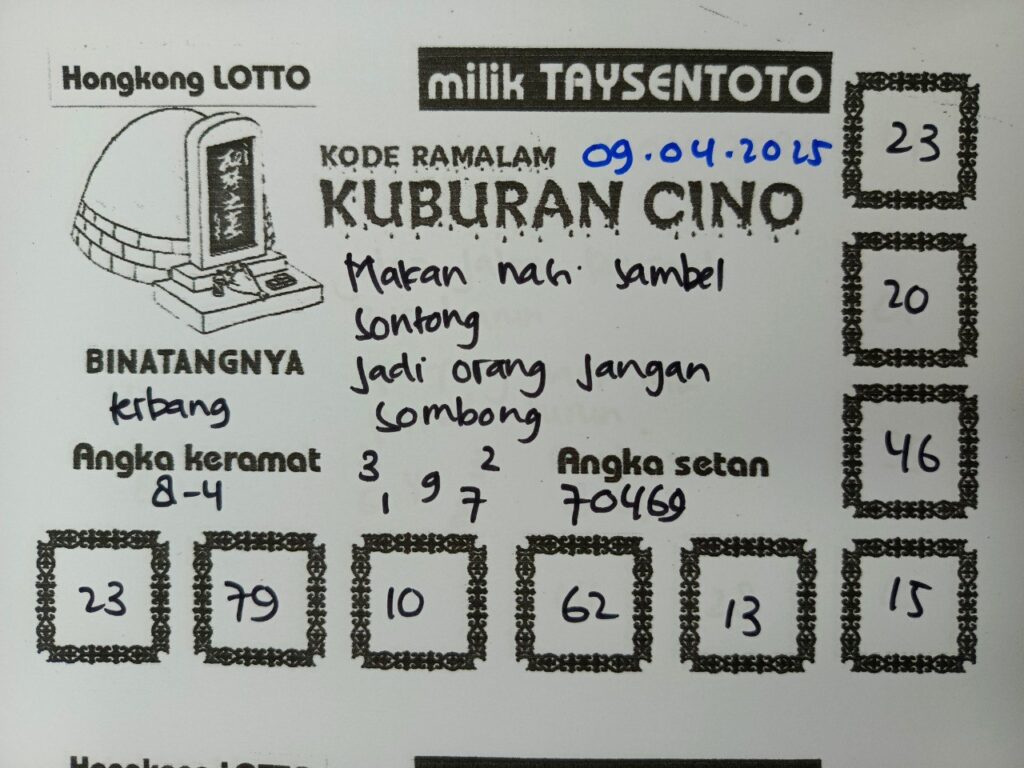 Hongkong LOTTO
milik TAYSENTOTO
KODE RAMALAM 09.04.2025
KUBURAN CINO
Makan nasi sambel
sontong
Jadi orang jangan
sombong
BINATANGNYA
terbang
Angka keramat
8-4
3 2
1 9 7
Angka setan
70469
23
20
46
23 79 10 62 13 15
Hongkong LOTTO